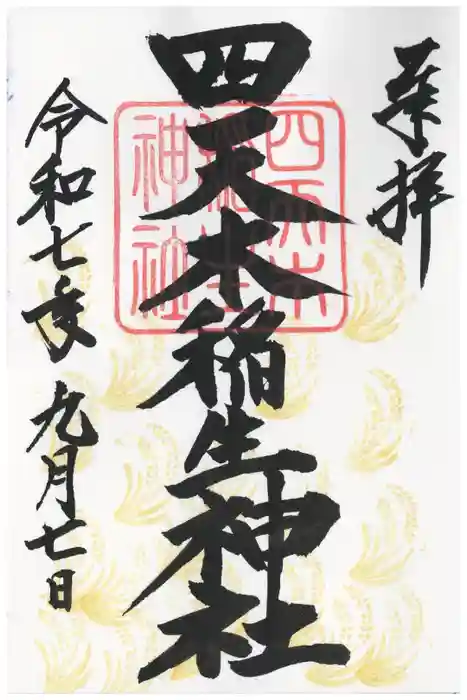 奉拝
四天木稲生神社
四天木
稲生
神社
令和七年
九月七日